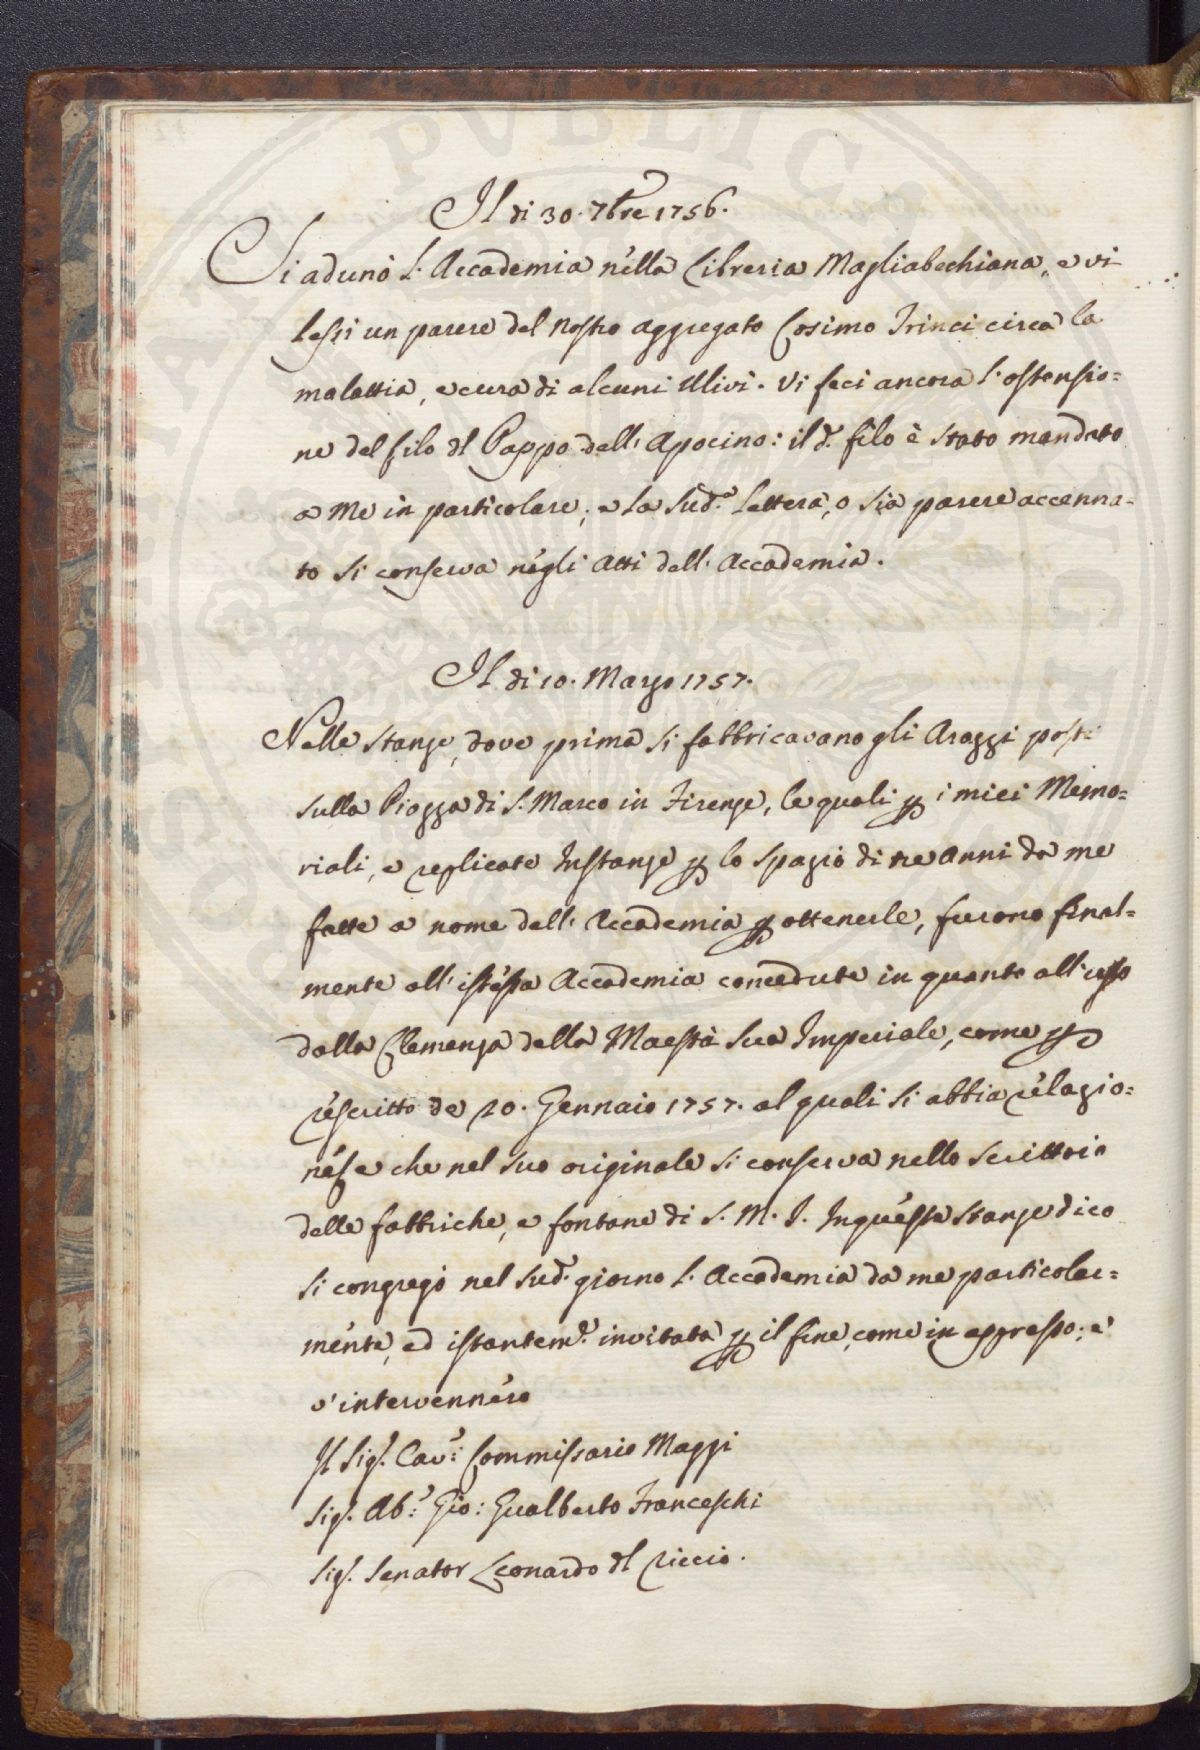 Il di 30. 7bre 1756.
Si adunò l'Accademia nella Libreria Magliabechiana, e vi
lessi un parere del nostro aggregato Cosimo Trinci circa la
malattia, e cura di alcuni Ulivi. Vi feci ancora l'ostensio=
ne del filo dl Pappo dell'Apocino: il d.º filo è stato mandato
a me in particolare; e la sud.ª Lettera, o sia parere accenna-
to si conserva negli Atti dell'Accademia.
Il di 10. Marzo 1757.
Nelle stanze, dove prima si fabbricavano gli Arazzi poste
sulla Piazza di S. Marco in Firenze, le quali p i miei Memo=
riali, e replicate Instanze p lo spazio di tre anni da me
fatte a nome dell'Accademia p ottenerle, furono final=
mente all'istessa Accademia concedute in quanto all'uso
dalla Clemenza della Maestà Sua Imperiale, come p
rescritto de 20. Gennaio 1757. al quali si abbia relazio=
ne, e che nel suo originale si conserva nello scrittoio
delle fabbriche, e fontane di S. M. I. In queste stanze dico
si congregò nel sud.º giorno l'Accademia da me particolar=
mente, ed istantem.e invitata p il fine, come in appresso; e
v'intervennero
Il Sig.r Cav.r: Commissario Maggi
Sig.r Ab.e: Gio: Gualberto Franceschi
Sig.r Senator Leonardo dl Riccio.
PVBLICA